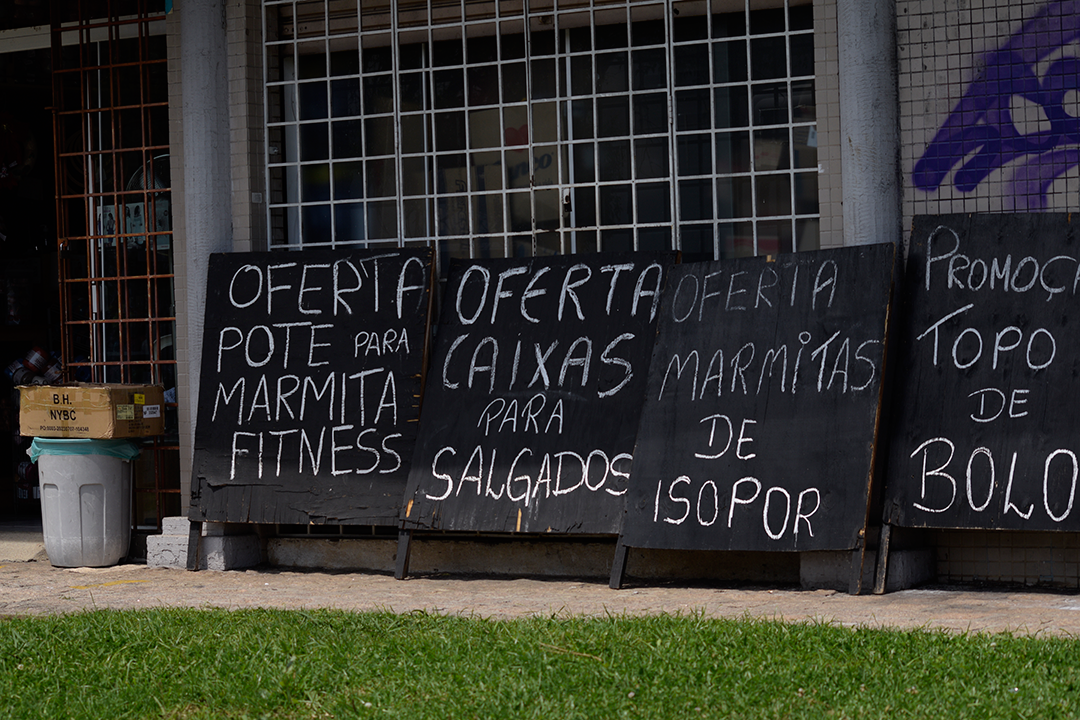 OFERTA
POTE PARA
MARMITA
FITNESS
OFERTA
CAIXAS
PARA
SALGADOS
OFERTA
MARMITAS
DE
ISOPOR
PROMOÇA
TOPO
DE
BOLO
B.H.
NYBC